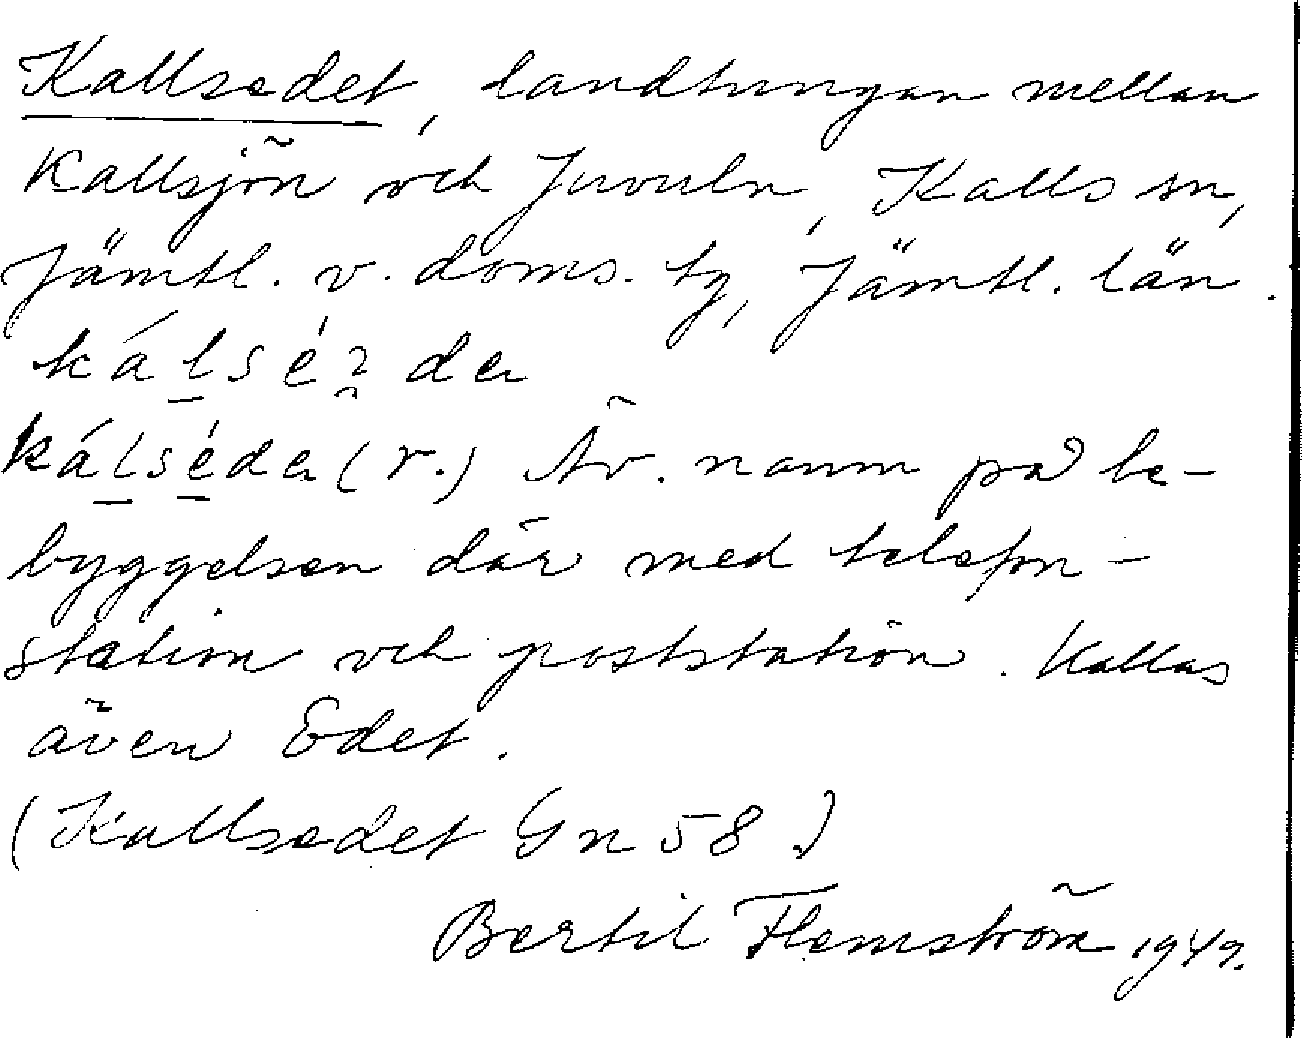 Kallsedet, landtungan mellan
Kallsjön och Juvuln, Kalls sn,
Jämtl. v. doms. tg, Jämtl. län.
kálsé de
kálséde (r.) Äv. namn på be-
byggelsen där med telefon-
station och poststation. Kallas
även Edet.
(Kallsedet Gn 58.)
Bertil Flemström 1949.